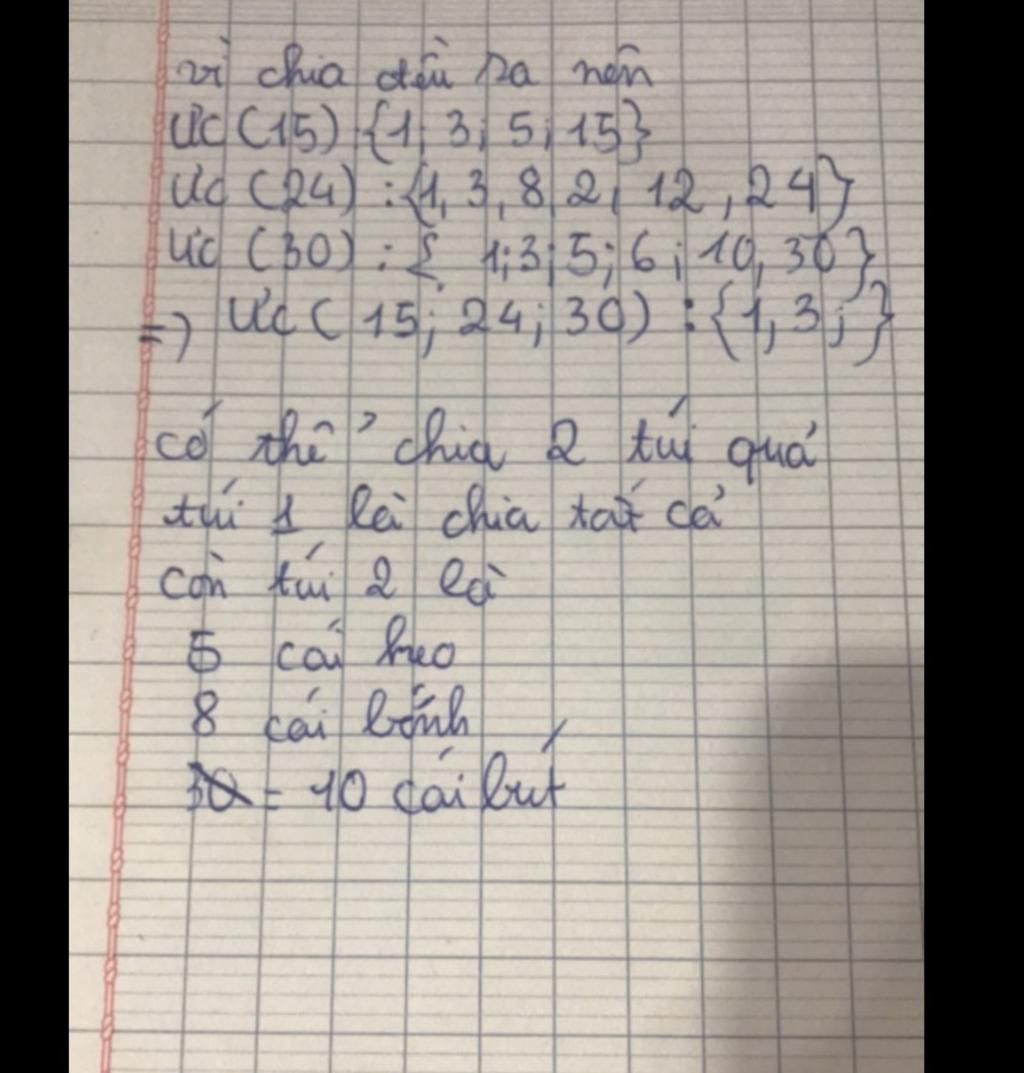 vì chia đều ra nên
ƯC (15) {1; 3; 5; 15}
ƯC (24) : {1, 3, 8, 2, 12, 24}
ƯC (30) : { 1; 3; 5; 6; 10, 30}
=> ƯC ( 15; 24; 30) : {1, 3; }
có thể chia 2 túi quá
túi 1 là chia tất cả
còn túi 2 là
5 cái heo
8 cái bánh
30 = 10 cái bút